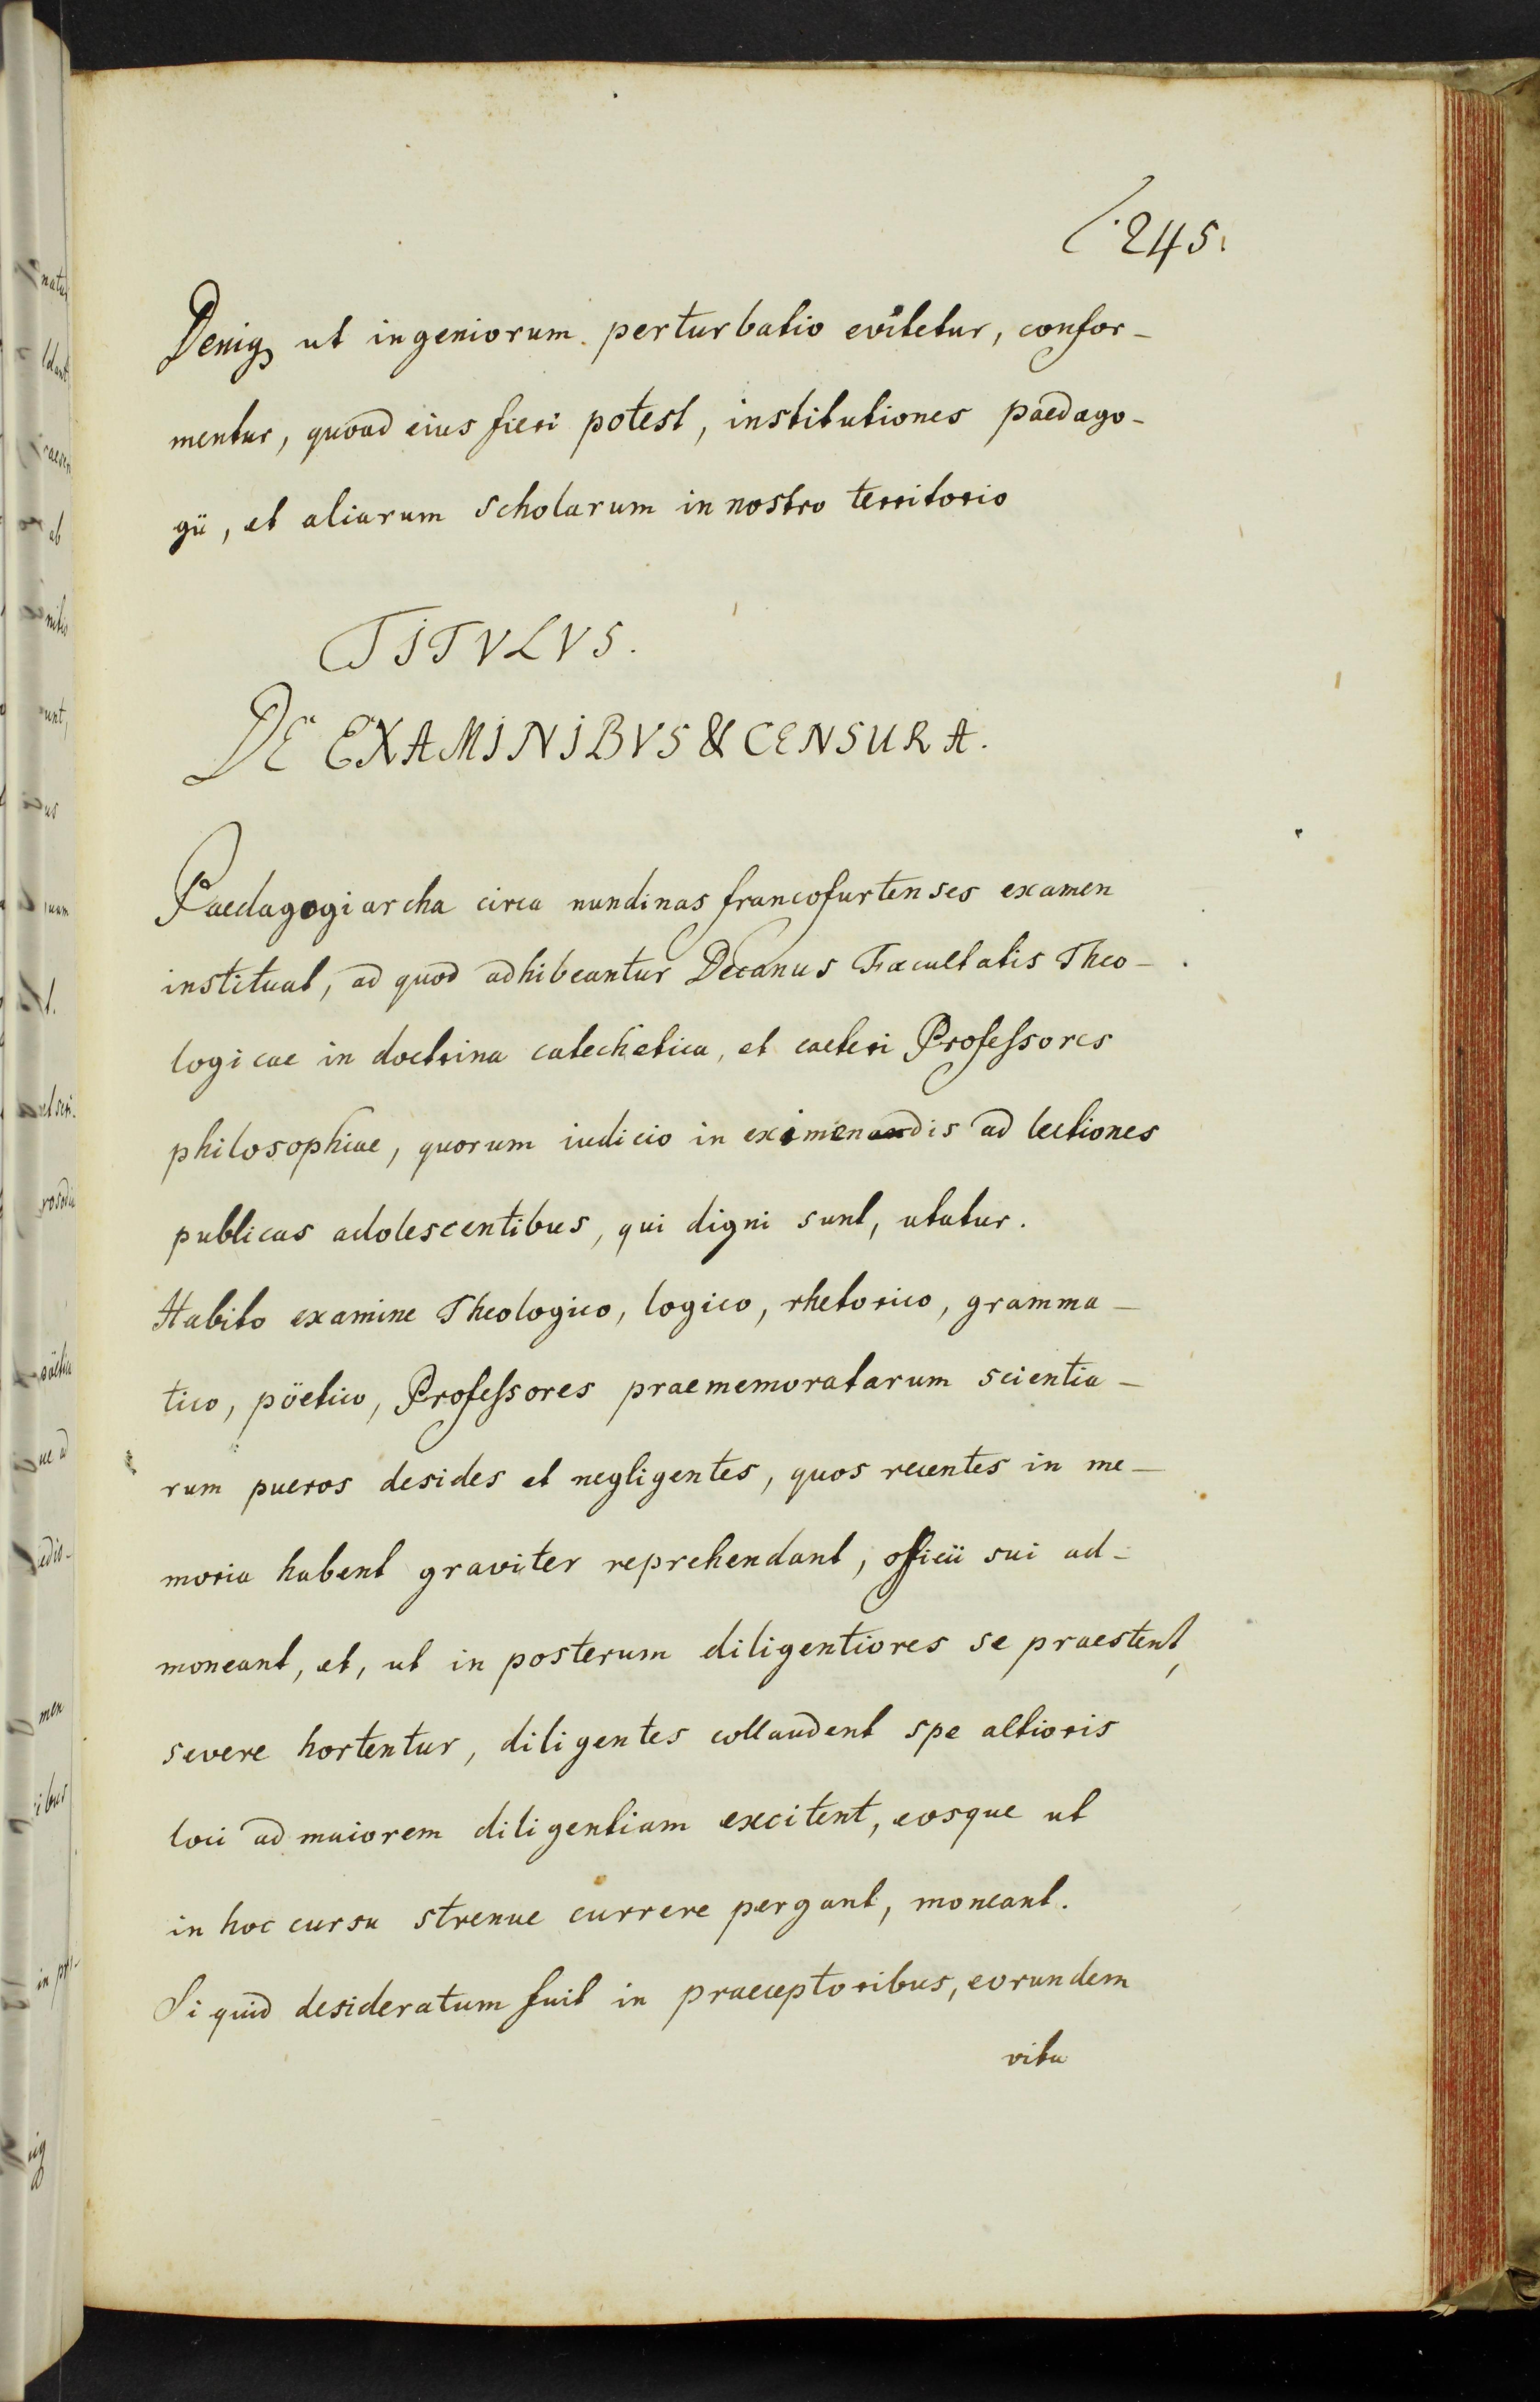 245.
Deniq ut ingeniorum perturbatio evitetur, confor-
mentur, quoad eius fieri potest, institutiones paedago-
gii, et aliarum scholarum in nostro territorio
TITVLVS.
DE EXAMINIBVS & CENSURA.
Paedagogiarcha circa nundinas francofurtenses examen
instituat, ad quod adhibeantur Decanus Facultatis Theo-
logicae in doctrina catechetica, et caeteri Professores
philosophiae, quorum iudicio in eximenandis ad lectiones
publicas adolescentibus, qui digni sunt, utatur.
Habito examine Theologico, logico, rhetorico, gramma-
tico, pöetico, Professores praememoratarum scientia-
rum pueros desides et negligentes, quos recentes in me-
moria habent graviter reprehendant, officii sui ad-
moneant, et, ut in posterum diligentiores se praestent,
severe hortentur, diligentes collaudent spe altioris
loci ad maiorem diligentiam excitent, eosque ut
in hoc cursu strenue currere pergant, moneant.
Si quid desideratum fuit in praeceptoribus, eorundem
vita